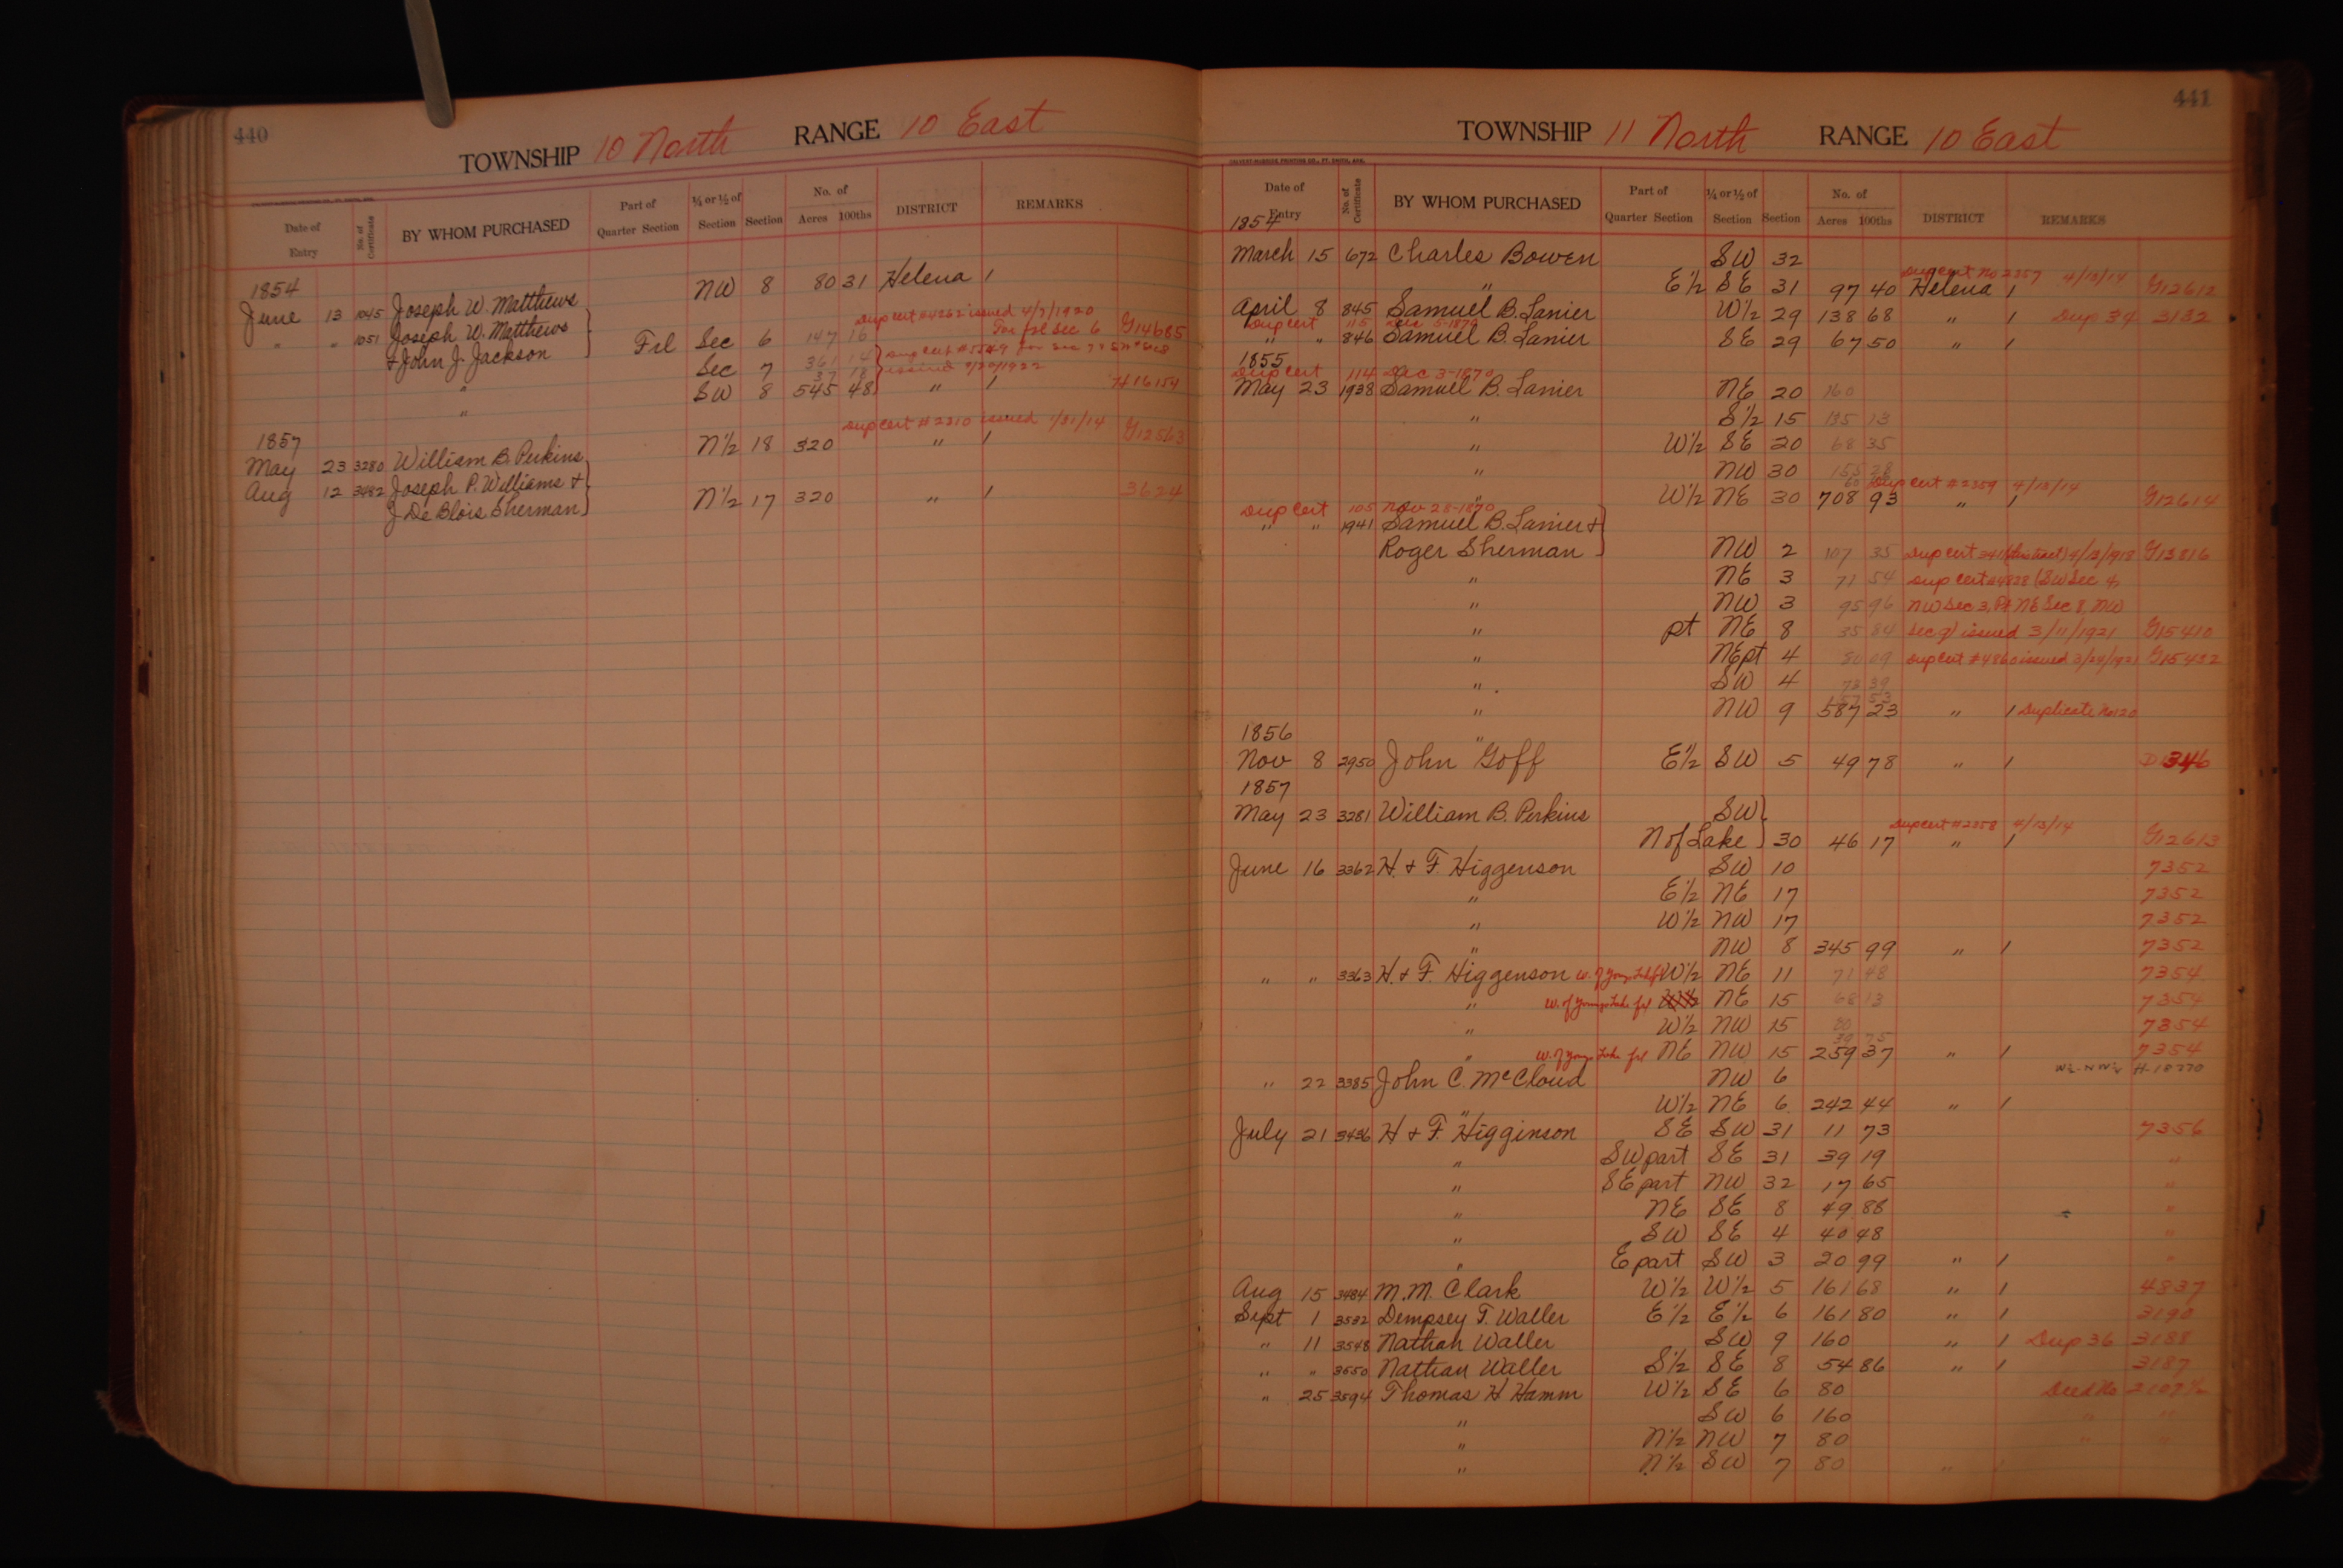 440
TOWNSHIP 10 North RANGE 10 East
Date of Entry No. of Certificate BY WHOM PURCHASED Part of Quarter Section ¼ or ½ of Section Section No. of Acres 100ths DISTRICT REMARKS
1854
June 13 1045 Joseph W. Matthews NW 8 80 31 Helena 1
Dup cert #4252 issued 4/7/1920
" " 1051 Joseph W. Matthews Frl Sec 6 147 16 For frl Sec 6 G14685
& John J. Jackson Sec 7 361 14
" SW 8 545 48 " 1 H16154
"
Dup cert #2310 issued 1/31/14
1857 N½ 18 320 " 1 G12563
May 23 3280 William B. Perkins
Aug 12 3482 Joseph P. Williams & N½ 17 320 " 1 3624
J De Blois Sherman
441
TOWNSHIP 11 North RANGE 10 East
Date of Entry No. of Certificate BY WHOM PURCHASED Part of Quarter Section ¼ or ½ of Section Section No. of Acres 100ths DISTRICT REMARKS
1854
March 15 672 Charles Bowen SW 32
Dup cert no 2357 4/13/14
" E½ SE 31 97 40 Helena 1 G12612
April 8 845 Samuel B. Lanier W½ 29 138 68 " 1 Dup 34 3132
Dup cert 115 Dec 5-1870
" " 846 Samuel B. Lanier SE 29 67 50 " 1
1855
Dup cert 114 Dec 3-1870
May 23 1938 Samuel B. Lanier NE 20 160
" S½ 15 135 13
" W½ SE 20 68 35
" NW 30 155 28
Dup cert #2359 4/13/14
" W½ NE 30 708 93 " 1 G12614
Dup cert 105 Nov 28-1870
" " 1941 Samuel B. Lanier &
Roger Sherman NW 2 107 35 Dup cert 3411 (Abstract) 4/12/1918 G13816
" NE 3 71 54 Dup cert #4828 (SW Sec 4,
" NW 3 95 96 NW Sec 3, Pt NE Sec 8, NW
" pt NE 8 35 84 Sec 9) issued 3/11/1921 G15410
" NE pt 4 80 09 Dup cert #4860 issued 3/24/1921 G15432
" SW 4 73 39
157 53
" NW 9 587 23 " 1 Duplicate No 120
1856 "
Nov 8 2950 John Goff E½ SW 5 49 78 " 1 346
1857
May 23 3281 William B. Perkins SW
Dup cert #2358 4/13/14
N of Lake 30 46 17 " 1 G12613
June 16 3362 H. & F. Higgenson SW 10 7352
" E½ NE 17 7352
" W½ NW 17 7352
" NW 8 345 99 " 1 7352
" " 3363 H. & F. Higgenson W½ NE 11 71 48 7354
" W. of Youngs Lake frl NE 15 68 13 7354
" W½ NW 15 80 7354
39 75
" W. of Youngs Lake frl NE NW 15 259 37 " 1 7354
W½-NW¼ H-18770
" 22 3385 John C. McCloud NW 6
" W½ NE 6 242 44 " 1
July 21 3436 H & F. Higginson SE SW 31 11 73 7356
" SW part SE 31 39 19 "
" SE part NW 32 17 65 "
" NE SE 8 49 88 "
" SW SE 4 40 48 "
" E part SW 3 20 99 " 1 "
Aug 15 3484 M. M. Clark W½ W½ 5 161 68 " 1 4837
Sept 1 3532 Dempsey T. Waller E½ E½ 6 161 80 " 1 3190
" 11 3548 Nathan Waller SW 9 160 " 1 Dup 36 3188
" " 3550 Nathan Waller S½ SE 8 54 86 " 1 3187
" 25 3594 Thomas H Hamm W½ SE 6 80 Deed No 2107½
" SW 6 160 " "
" N½ NW 7 80 " "
" N½ SW 7 80 " 1